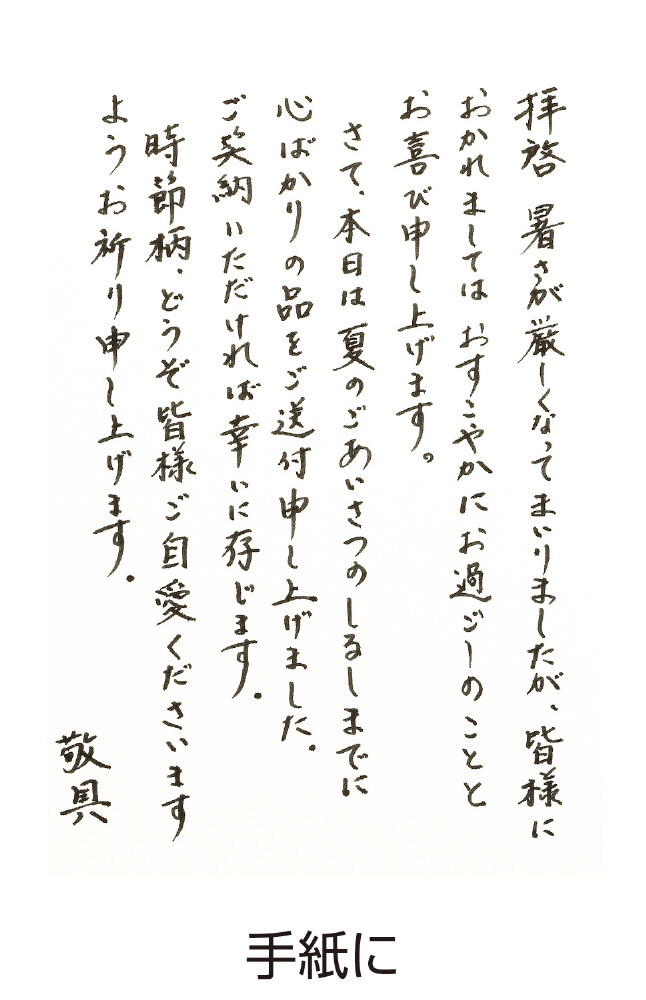 拝啓 暑さが厳しくなってまいりましたが、皆様に
おかれましてはおすこやかにお過ごしのことと
お喜び申し上げます。
さて、本日は夏のごあいさつのしるしまでに
心ばかりの品をご送付申し上げました。
ご笑納いただければ幸いに存じます。
時節柄、どうぞ皆様ご自愛くださいます
ようお祈り申し上げます。
敬具
手紙に